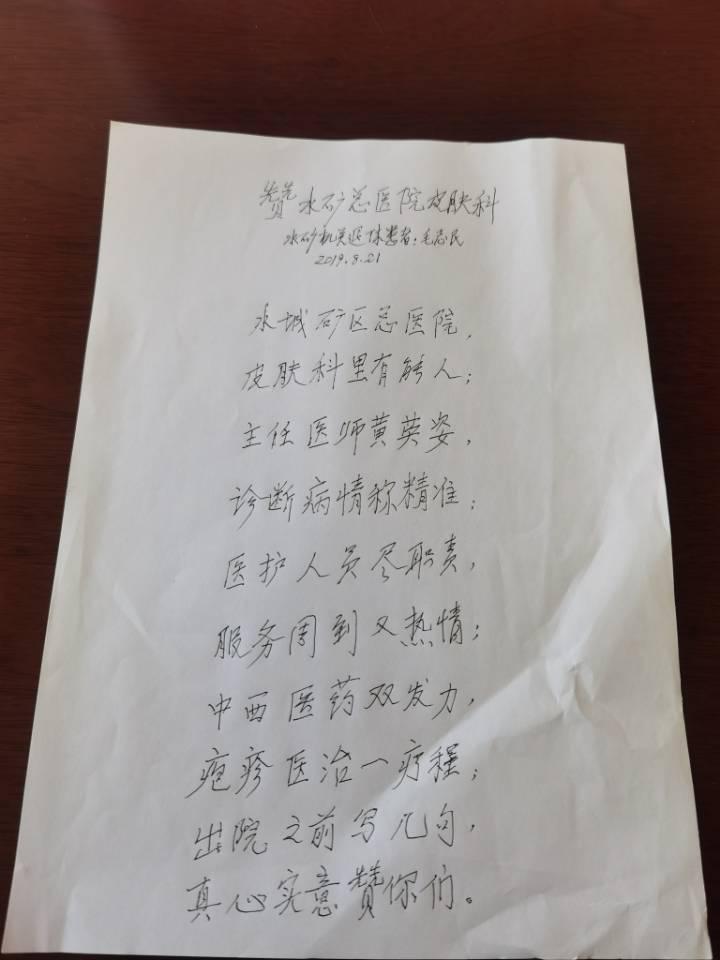 赞水矿总医院皮肤科
水矿机关退休患者：毛志民
2019.8.21
水城矿区总医院，
皮肤科里有能人；
主任医师黄英姿，
诊断病情称精准；
医护人员尽职责，
服务周到又热情；
中西医药双发力，
疱疹医治一疗程；
出院之前写几句，
真心实意赞你们。